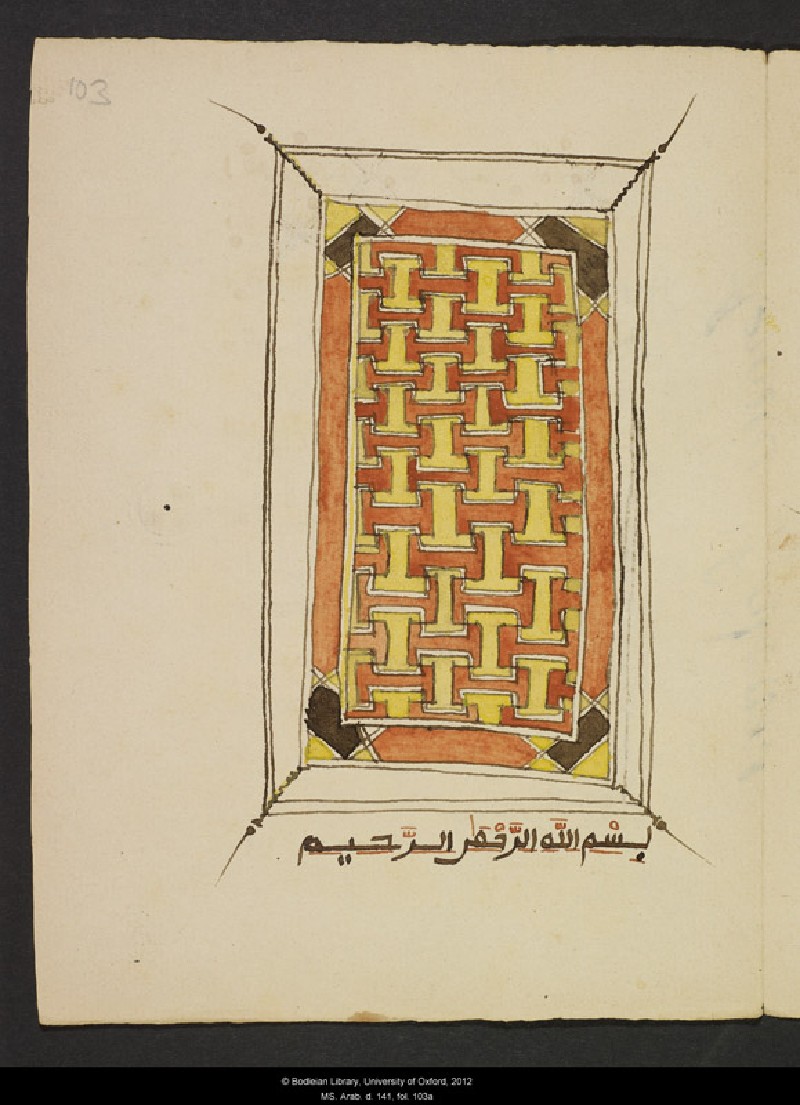 103
بِسْمِ اللَّهِ الرَّحْمَٰنِ الرَّحِيمِ
© Bodleian Library, University of Oxford, 2012
MS. Arab. d. 141, fol. 103a